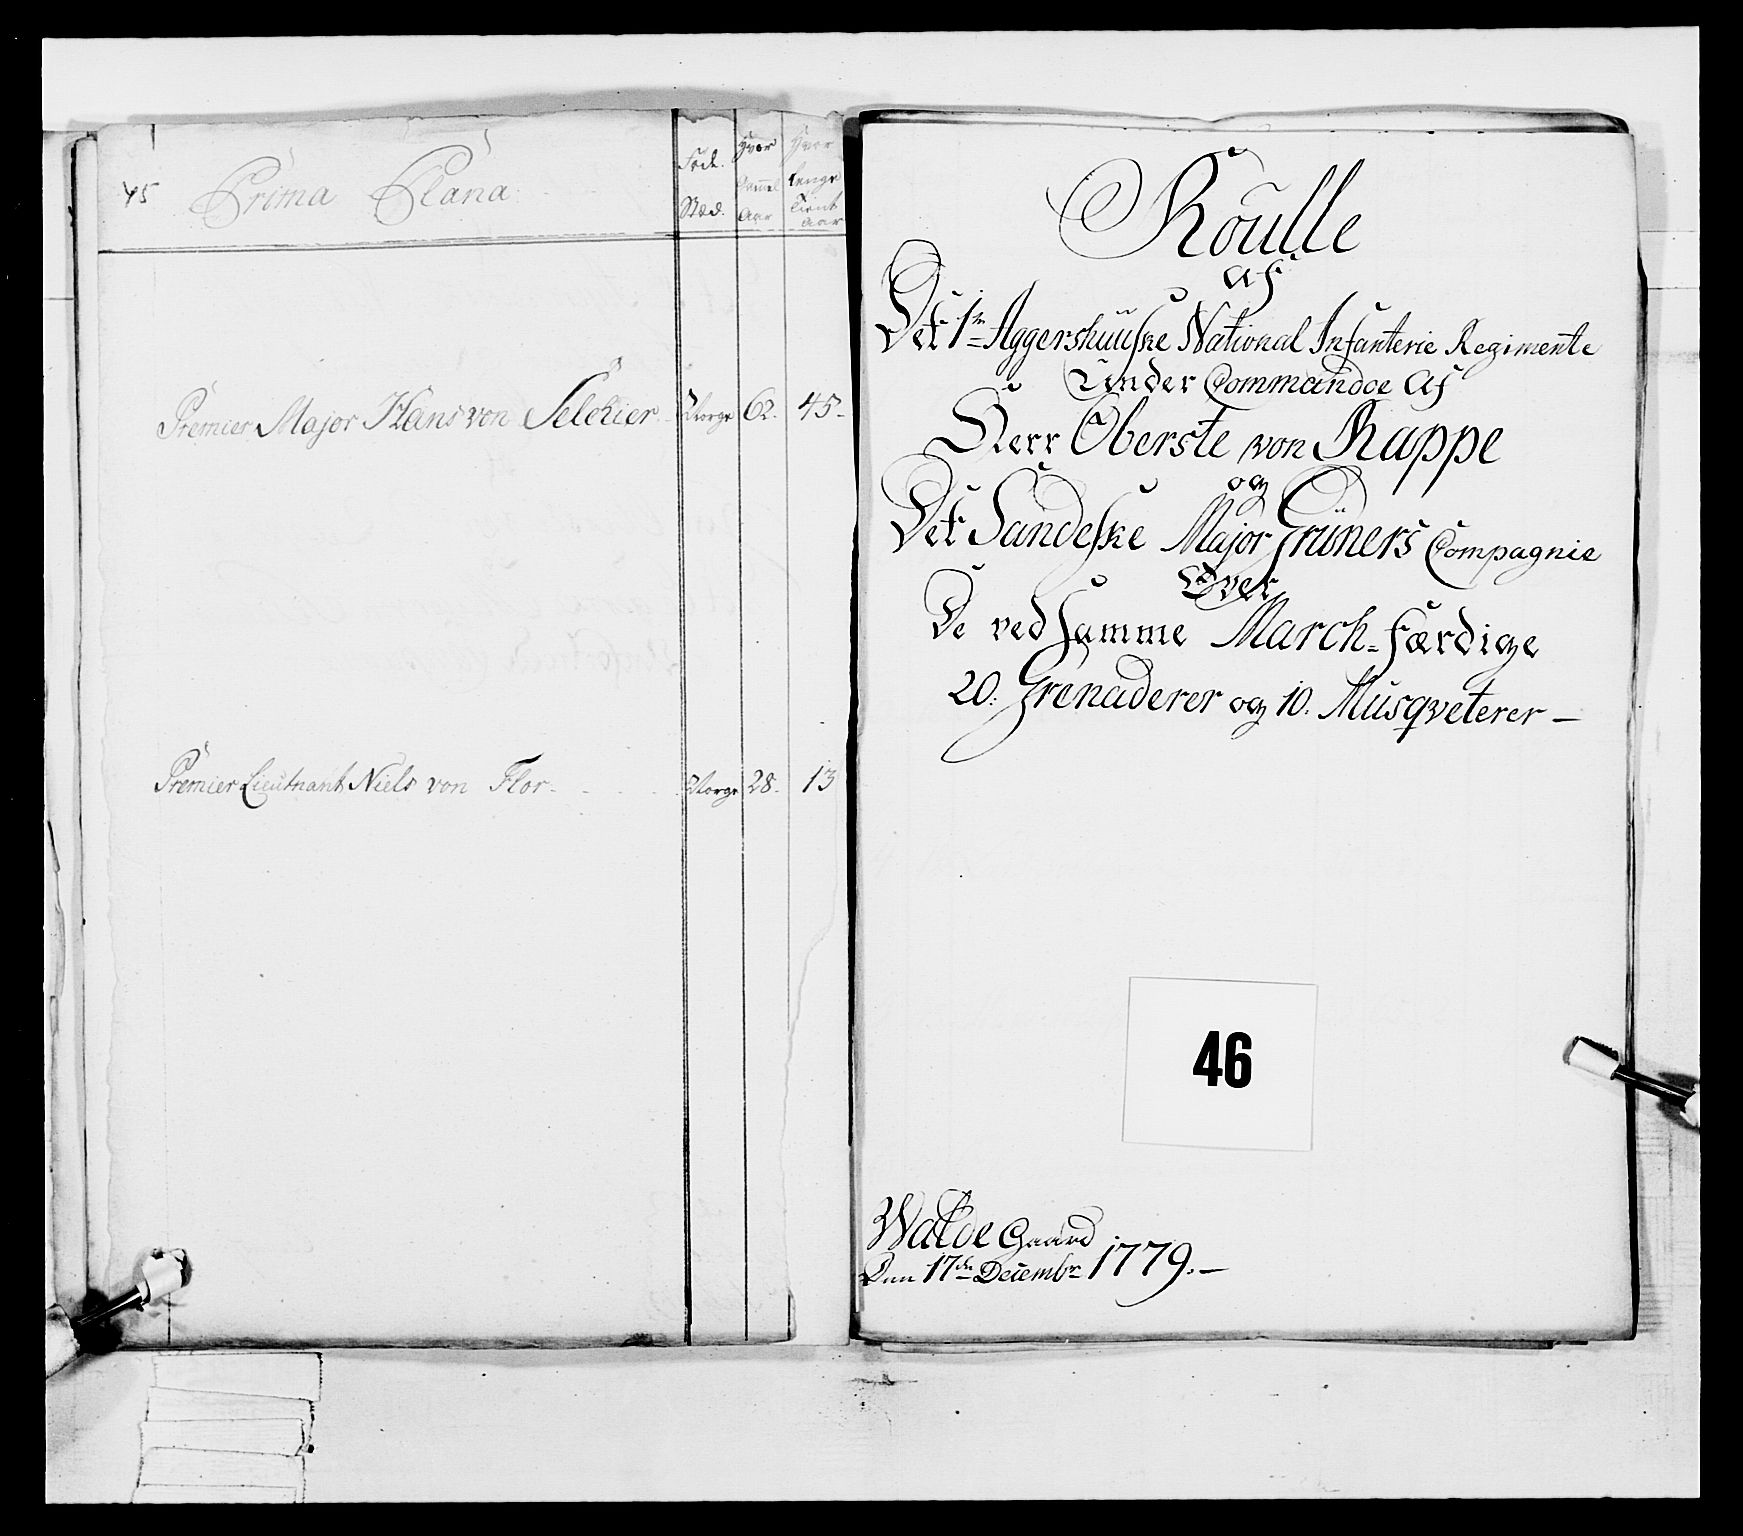 45 Prima Plana
Føde
Stæd.
Hvor
Gamel
Aar
Hvor
Lenge
Tient
Aar
Premier Major Hans von Selchier Norge 62. 45-
Premier Lieutnant Niels von Flor - - - - Norge 28. 13
Roulle
af
Det 1te Aggershuuske National Infanterie Regimente
Under Commandoe af
Herr Oberste von Rappe
og
Det Sandeske Major Grüners Compagnie
Over
De ved samme March-færdige
20: Grenaderer og 10. Musqveterer —
46
Walde Gaard
Den 17de Decembr 1779. —